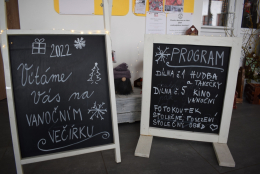 2022
Vítáme
Vás na
VÁNOČNÍM
VEČÍRKU
PROGRAM
DÍLNA č.1 HUDBA
A TANEČKY
DÍLNA č.5 KINO
VÁNOČNÍ
FOTOKOUTEK
SPOLEČNÉ POSEZENÍ
SPOLEČNÝ OBĚD